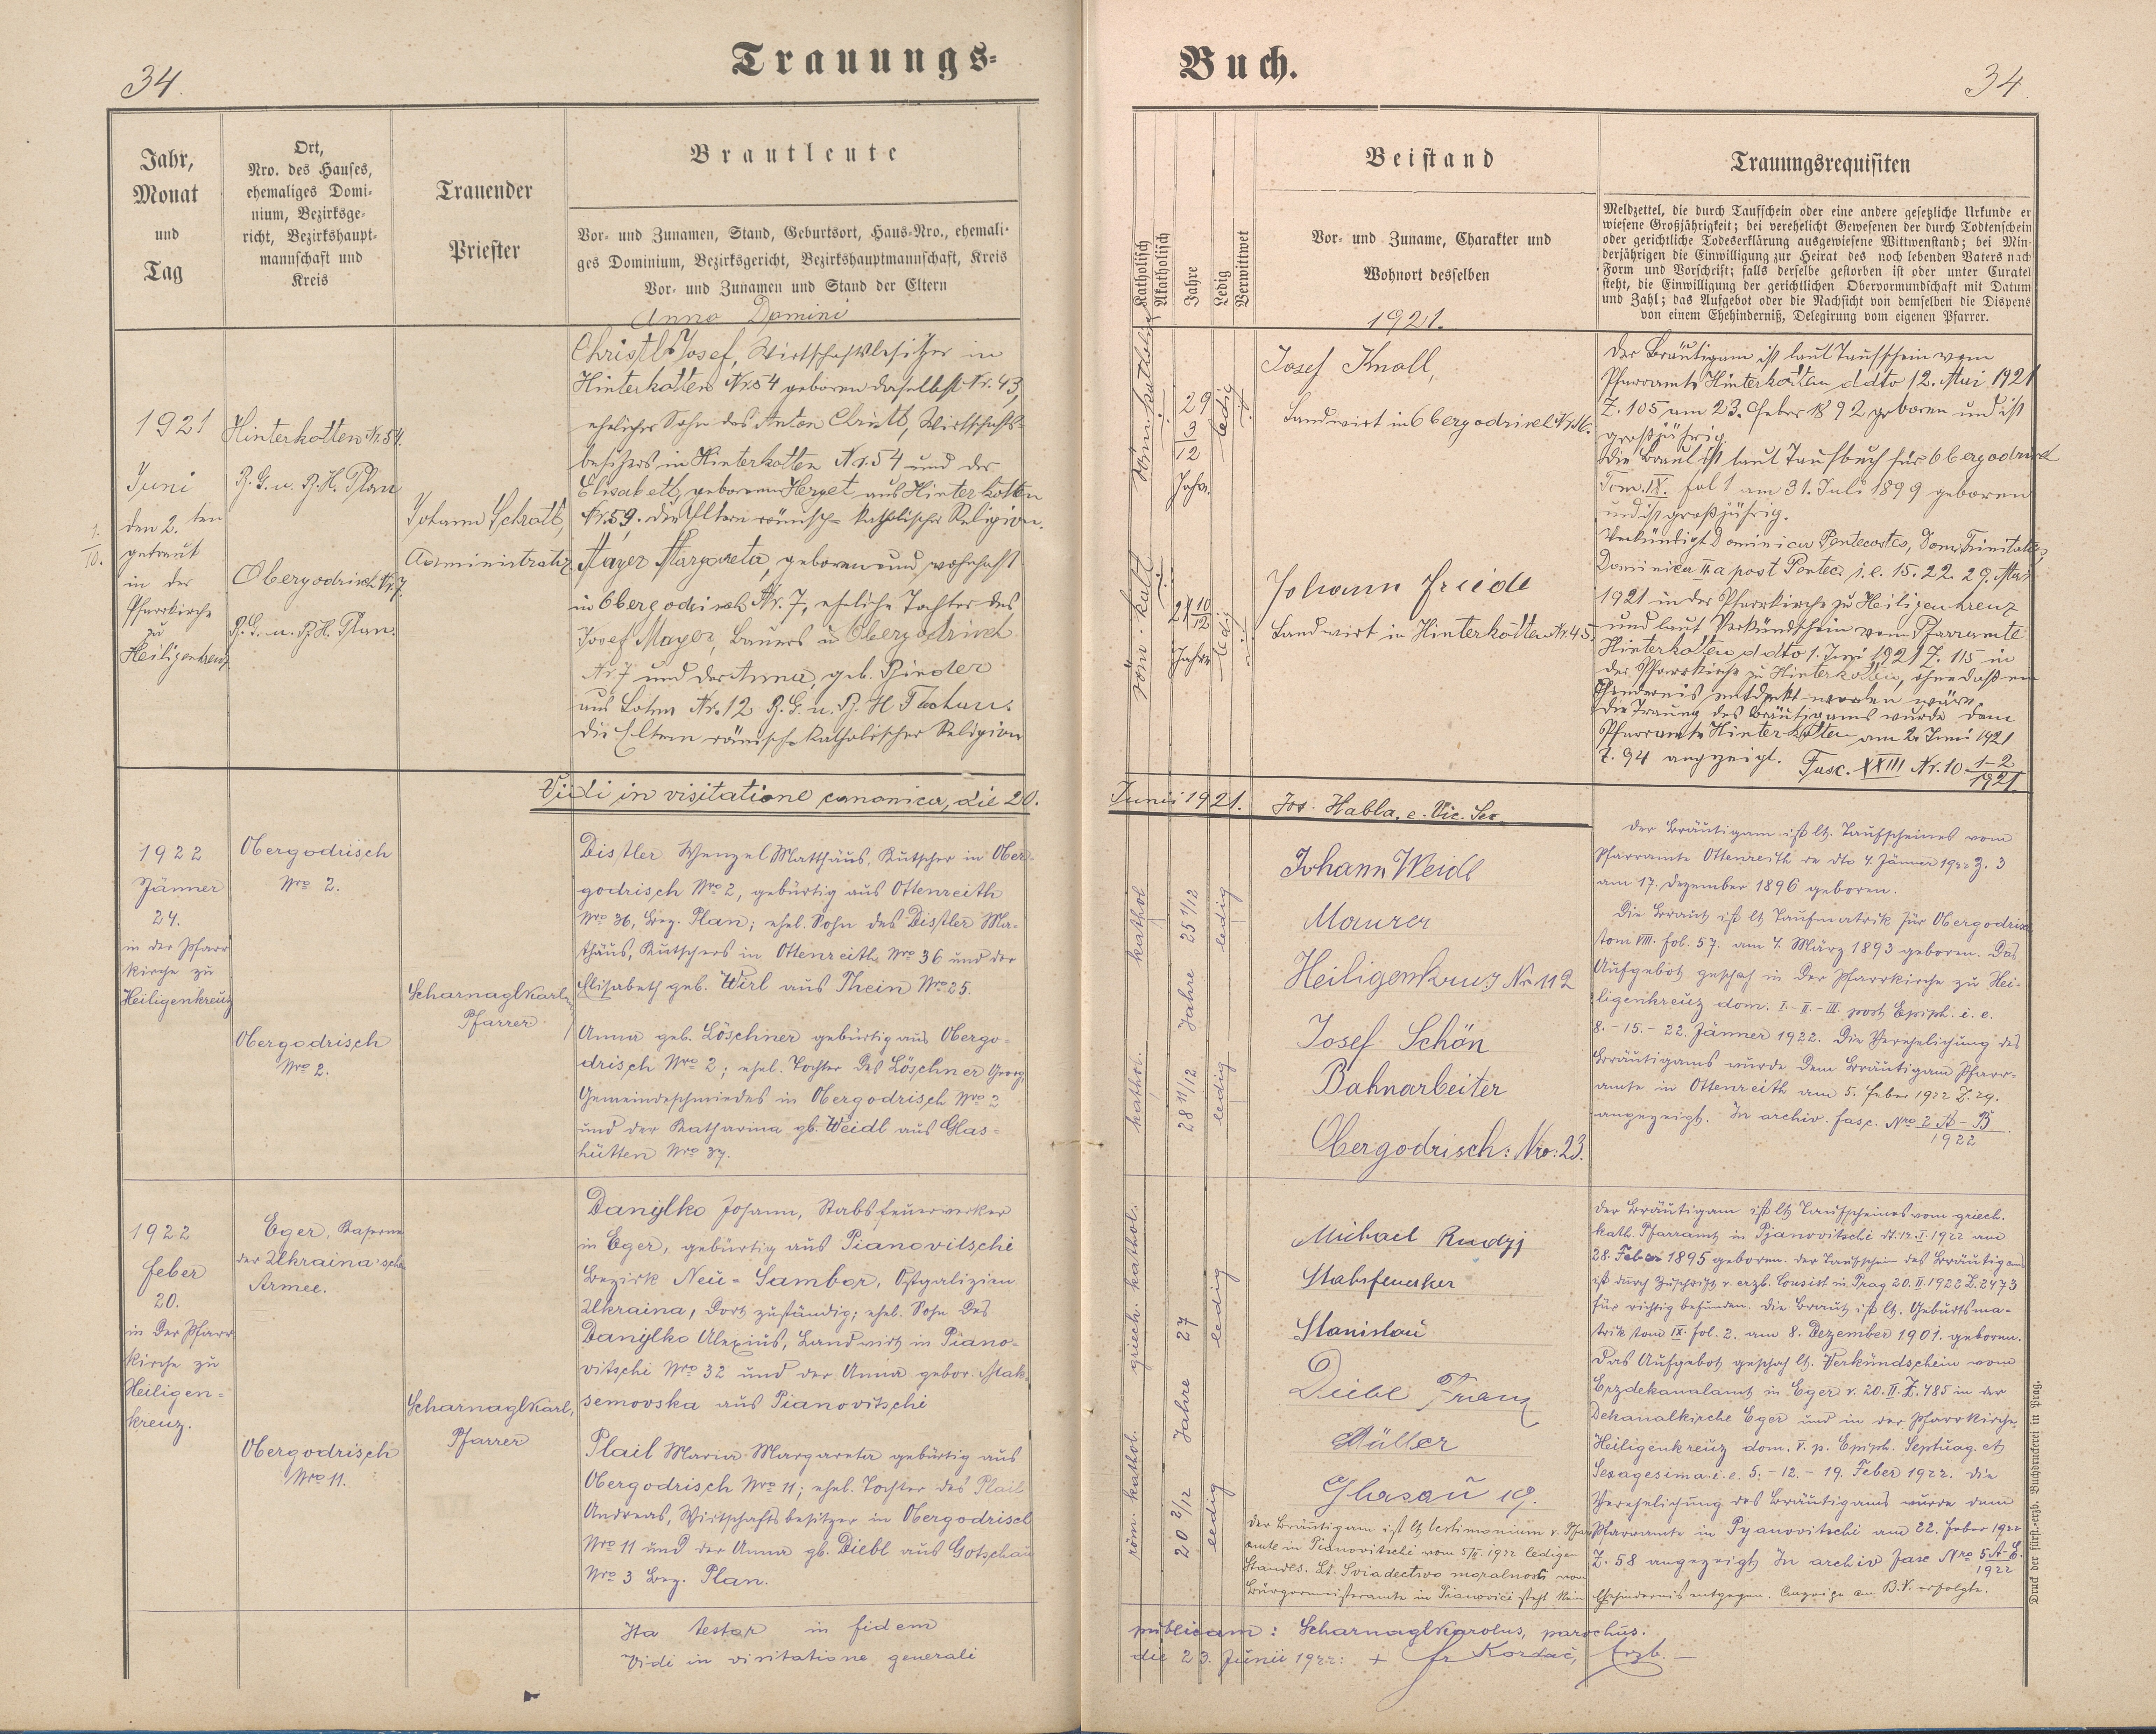 34.
Trauungs-
Buch.
34
Jahr,
Monat
und
Tag
Ort,
Nro. des Hauses,
ehemaliges Domi-
nium, Bezirksge-
richt, Bezirkshaupt-
mannschaft und
Kreis
Trauender
Priester
Brautleute
Vor- und Zunamen, Stand, Geburtsort, Haus-Nro., ehemali-
ges Dominium, Bezirksgericht, Bezirkshauptmannschaft, Kreis
Vor- und Zunamen und Stand der Eltern
Anno Domini
Katholisch
Akatholisch
Jahre
Ledig
Verwittwet
Beistand
Vor- und Zuname, Charakter und
Wohnort desselben
1921.
Trauungsrequisiten
Meldzettel, die durch Taufschein oder eine andere gesetzliche Urkunde er
wiesene Großjährigkeit; bei verehelicht Gewesenen der durch Todtenschein
oder gerichtliche Todeserklärung ausgewiesene Wittwenstand; bei Min-
derjährigen die Einwilligung zur Heirat des noch lebenden Vaters nach
Form und Vorschrift; falls derselbe gestorben ist oder unter Curatel
steht, die Einwilligung der gerichtlichen Obervormundschaft mit Datum
und Zahl; das Aufgebot oder die Nachsicht von demselben die Dispens
von einem Ehehinderniß, Delegirung vom eigenen Pfarrer.
1921
Juni
den 2.ten
getraut
in der
Pfarrkirche
zu
Heiligenkreuz
1/10.
Hinterkotten Nr. 54.
B. G. u. B. H. Plan
Obergodrisch Nr. 7
B. G. u. B. H. Plan.
Johann Schrott,
Administrator
Christl Josef, Wirtschaftsbesitzer in
Hinterkotten Nr. 54 geboren daselbst Nr. 43,
ehelicher Sohn des Anton Christl, Wirtschafts-
besitzers in Hinterkotten Nr. 54 und der
Elisabeth, geborenen Herget aus Hinterkotten
Nr. 59. die Eltern römisch-katholischer Religion.
Mayer Margareta, geboren und wohnhaft
in Obergodrisch Nr. 7, eheliche Tochter des
Josef Mayer, Bauers in Obergodrisch
Nr. 7 und der Anna, geb. Binder
aus Lohm Nr. 12 B. G. u. B. H. Tachau.
die Eltern römisch-katholischer Religion
röm. katholisch
29 3/12 Jahr.
ledig
röm. kath.
21 10/12 Jahre
ledig
Josef Knoll,
Landwirt in Obergodrisch Nr. 16.
Johann Friedl
Landwirt in Hinterkotten Nr. 45.
Der Bräutigam ist laut Taufschein vom
Pfarramte Hinterkotten ddto 12. Mai 1921
Z. 105 am 23. Feber 1892 geboren und ist
großjährig.
Die Braut ist laut Taufbuch für Obergodrisch
Tom. IX. fol 1 am 31. Juli 1899 geboren
und ist großjährig.
Verkündigt Dominica Pentecostes, Dom. Trinitatis,
Dominica II.a post Pentec. i. e. 15. 22. 29. Mai
1921 in der Pfarrkirche zu Heiligenkreuz
und laut Verkündschein vom Pfarramte
Hinterkotten ddto 1. Juni 1921 Z. 115 in
der Pfarrkirche zu Hinterkotten, ohne daß ein
Hindernis entdeckt worden wäre.
Die Trauung des Bräutigams wurde dem
Pfarramte Hinterkotten am 2. Juni 1921
Z. 94 angezeigt. Fasc. XXIII Nr. 10 1-2/1921.
Vidi in visitatione canonica, die 20.
Junii 1921. Jos. Habla, e. Vic. Sec.
1922
Jänner
24.
in der Pfarr
kirche zu
Heiligenkreuz
Obergodrisch
Nro 2.
Obergodrisch
Nro 2.
Scharnagl Karl,
Pfarrer
Distler Wenzel Matthäus, Kutscher in Ober-
godrisch Nro 2, gebürtig aus Ottenreith
Nro 36, Bez. Plan; ehel. Sohn des Distler Ma-
thäus, Kutschers in Ottenreith Nro 36 und der
Elisabeth geb. Wirl aus Thein Nro 25.
Anna geb. Löschner gebürtig aus Obergo-
drisch Nro 2; ehel. Tochter des Löschner Georg,
Gemeindeschmiedes in Obergodrisch Nro 2
und der Katharina gb. Weidl aus Glas-
hütten Nro 37.
kathol.
25 1/12 Jahre
ledig
kathol.
28 11/12
ledig
Johann Weidl
Maurer
Heiligenkreuz Nr. 112
Josef Schön
Bahnarbeiter
Obergodrisch: Nro: 23.
Der Bräutigam ist lt. Taufscheines vom
Pfarramte Ottenreith de dto 4. Jänner 1922 Z. 3
am 17. Dezember 1896 geboren.
Die Braut ist lt Taufmatrik für Obergodrisch
tom VIII. fol. 57. am 4. März 1893 geboren. Das
Aufgebot geschah in der Pfarrkirche zu Hei-
ligenkreuz dom. I.-II.-III. post Epiph. i. e.
8.-15.-22. Jänner 1922. Die Verehelichung des
Bräutigams wurde dem Bräutigam Pfarr-
amte in Ottenreith am 5. Feber 1922 Z. 29.
angezeigt. In archiv. fasc. Nro 2 A-B/1922.
1922
Feber
20.
in der Pfarr
kirche zu
Heiligen-
kreuz.
Eger, Kaserne
der Ukraina'schen
Armee.
Obergodrisch
Nro 11.
Scharnagl Karl,
Pfarrer
Danylko Johann, Stabsfeuerwerker
in Eger, gebürtig aus Pianovitschi
Bezirk Neu-Sambor, Ostgalizien
Ukraina, dort zuständig; ehel. Sohn des
Danylko Alexius, Landwirt in Piano-
vitschi Nro 32 und der Anna gebor. Mak-
semovska aus Pianovitschi
Plail Maria Margareta gebürtig aus
Obergodrisch Nro 11; ehel. Tochter des Plail
Andreas, Wirtschaftsbesitzer in Obergodrisch
Nro 11 und der Anna gb. Diebl aus Gotschau
Nro 3 Bez. Plan.
griech. kathol.
27 Jahre
ledig
röm. kathol.
20 2/12
ledig
Michael Rudyj
Stabsfeuerker
Stanislau
Diebl Franz
Müller
Glasau 19.
Der Bräutigam ist lt testimonium v. Pfarr
amte in Pianovitschi vom 5/II. 1922 ledigen
Standes. Lt. Sviadectwo moralnosti vom
Bürgermeisteramte in Pianovici steht kein Ehehindernis entgegen. Anzeige an B.V. erfolgte.
Der Bräutigam ist lt Taufscheines vom griech.
kath. Pfarramt in Pjanovitschi dt. 12. I. 1922 am
28. Feber 1895 geboren. Der Taufschein des Bräutigams
ist durch Zuschrift v. erzb. Consist. in Prag 20. II. 1922 Z. 2473
für richtig befunden. Die Braut ist lt. Geburtsma-
trik tom IX. fol. 2. am 8. Dezember 1901. geboren.
Das Aufgebot geschah lt. Verkündschein vom
Erzdekanalamt in Eger v. 20. II. Z. 485 in der
Dekanalkirche Eger und in der Pfarrkirche
Heiligenkreuz dom. V. p. Epiph. Septuag. et
Sexagesima. i. e. 5.-12.-19. Feber 1922. Die
Verehelichung des Bräutigams wurde dem
Pfarramte in Pyanovitschi am 22. Feber 1922
Z. 58 angezeigt. In archiv fasc Nro 5 A-E/1922.
Ita testor in fidem
publicam: Scharnagl Karolus, parochus.
Vidi in visitatione generali
die 23. Junii 1922: + fr Kordač, Erzb.
Druck der fürst.-erzb. Buchdruckerei in Prag.